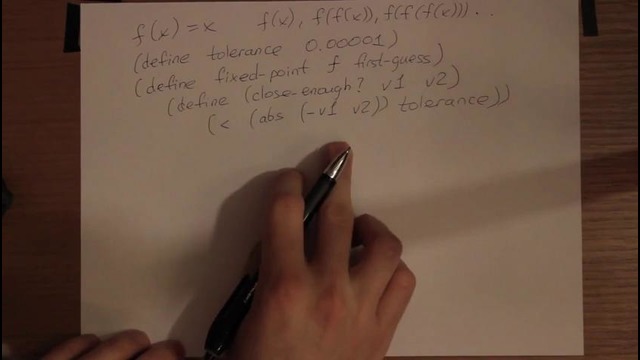 f(x) = x f(x), f(f(x)), f(f(f(x))) . .
(define tolerance 0.00001)
(define fixed-point f first-guess)
(define (close-enough? v1 v2)
(< (abs (-v1 v2)) tolerance))